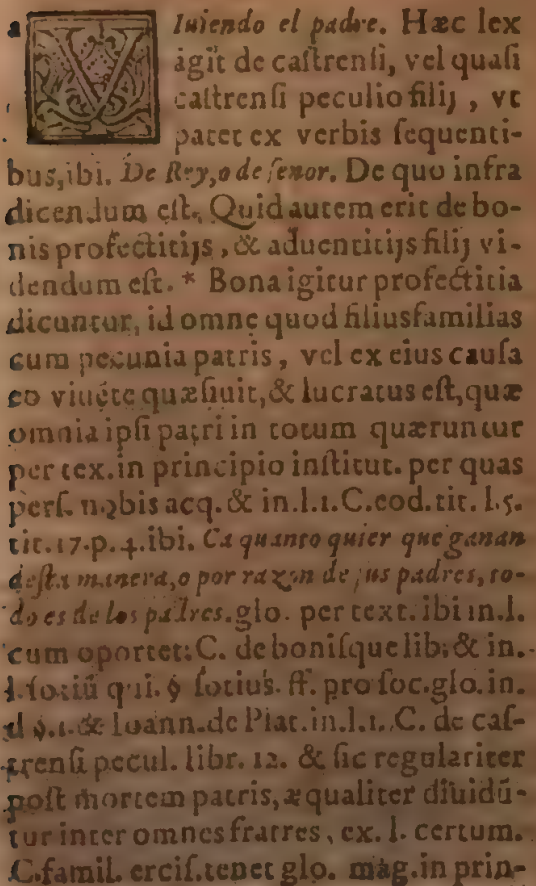 a VIuiendo el padre. Hæc lex
agit de caſtrenſi, vel quaſi
caſtrenſi peculio filij, vt
patet ex verbis ſequenti-
bus, ibi. De Rey, o de ſenor. De quo infra
dicendum eſt. Quid autem erit de bo-
nis profectitijs, & aduentitijs filij vi-
dendum eſt. * Bona igitur profectitia
dicuntur, id omne quod filiusfamilias
cum pecunia patris, vel ex eius cauſa
eo viuẽte quæſiuit, & lucratus eſt, quæ
omnia ipſi patri in totum quæruntur
per tex. in principio inſtitut. per quas
perſ. nobis acq. & in. l. 1. C. eod. tit. l. 5.
tit. 17. p. 4. ibi. Ca quanto quier que ganan
deſta manera, o por razon de ſus padres, to-
do es de los padres. glo. per text. ibi in. l.
cum oportet: C. de boniſque lib. & in.
l. ſociũ qui. §. ſotius. ff. pro ſoc. glo. in.
d §. 1. & Ioann. de Plat. in. l. 1. C. de caſ-
trenſi pecul. libr. 12. & ſic regulariter
poſt mortem patris, æqualiter diuidũ-
tur inter omnes fratres, ex. l. certum.
C. famil. erciſ. tenet glo. mag. in prin-